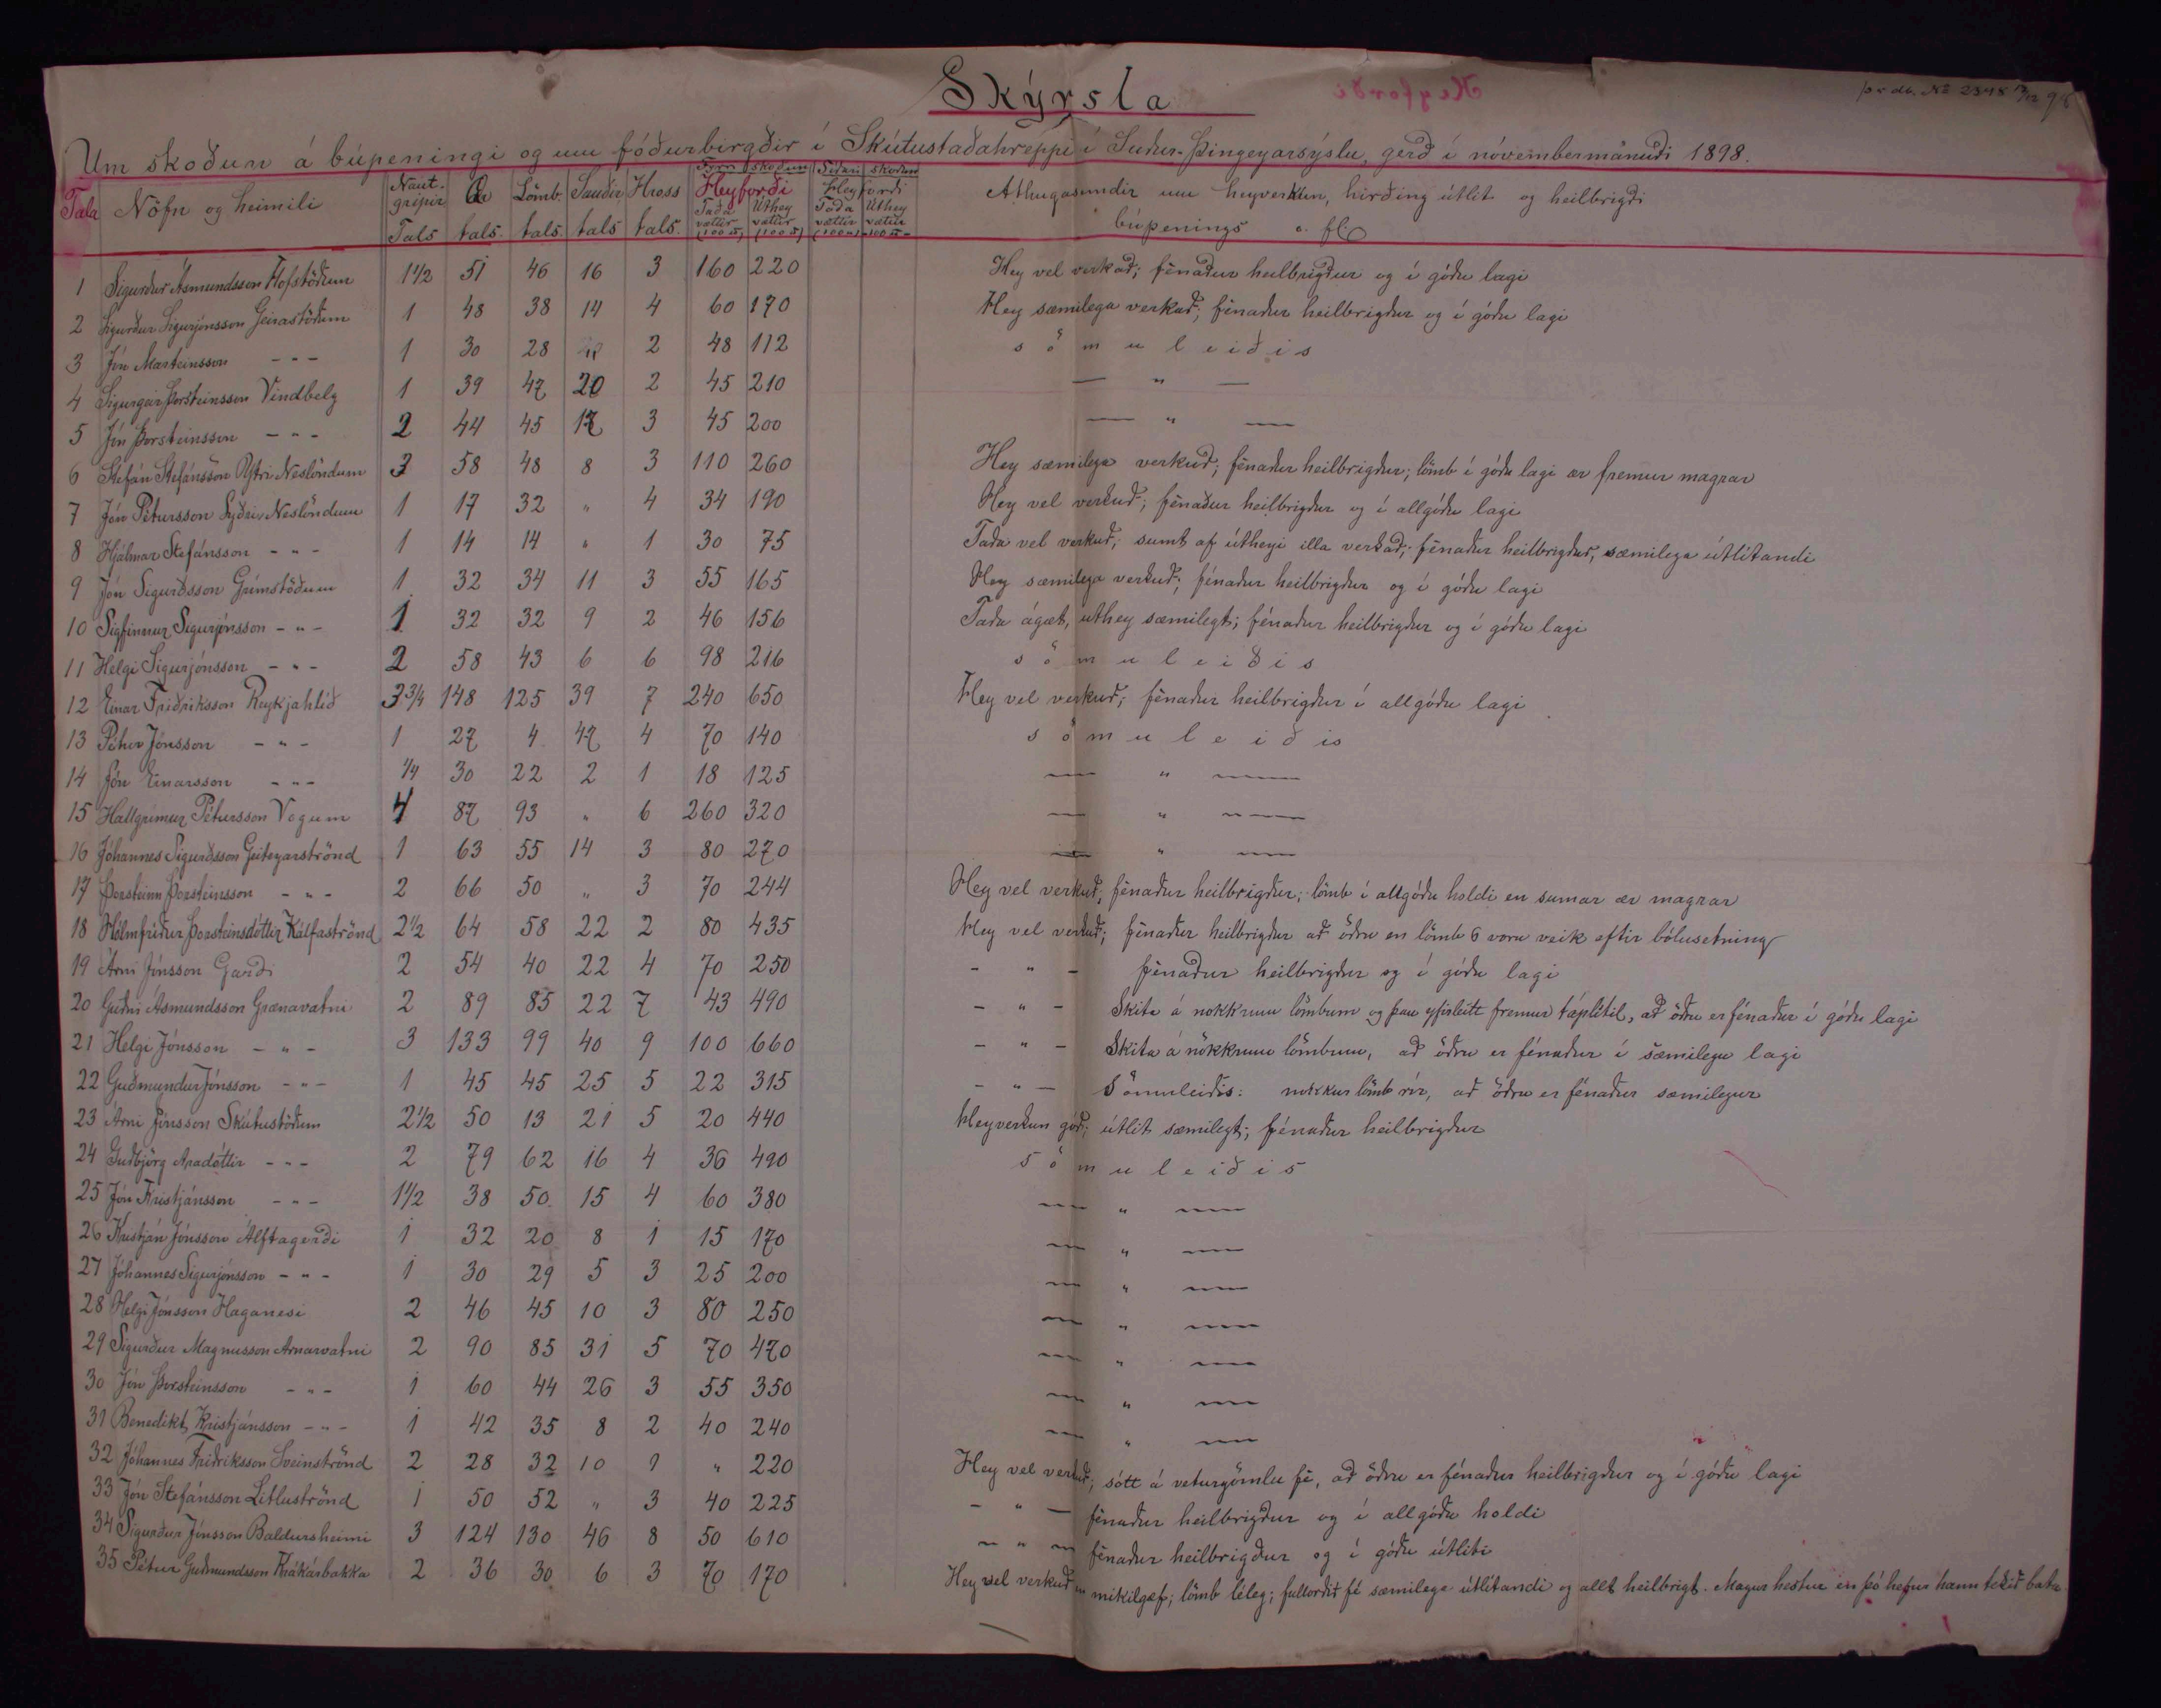 Skýrsla
þr. db. No 2348 12/12 98
Um skoðun á búpeningi og um fóðurbirgðir í Skútustaðahreppi í Suður-Þingeyarsýslu, gerð í nóvembermánuði 1898.
Tala Nöfn og heimili Nautgripir Tals Ær tals. Lömb. tals. Sauðir tals Hross tals. Fyrri skoðun Heyforði Taða vættir (100 ℔) Úthey vættir (100 ℔) Síðari skoðun Heyforði Taða vættir (100 ℔) Úthey vættir 100 ℔ Athugasemdir um heyverkun, hirðing útlit og heilbrigði
búpenings o. fl.
1 Sigurður Ásmundsson Hofstöðum 1 1/2 51 46 16 3 160 220 Hey vel verkað; fénaður heilbrigður og í góðu lagi
2 Sigurður Sigurjónsson Geirastöðum 1 48 38 14 4 60 170 Hey sæmilega verkuð; fénaður heilbrigður og í góðu lagi
3 Jón Marteinsson - " - 1 30 28 2 48 112 sömuleiðis
4 Sigurgeir Þorsteinsson Vindbelg 1 39 47 20 2 45 210 — " —
5 Jón Þorsteinsson - " - 2 44 45 17 3 45 200 — " —
6 Stefán Stefánsson Ytri-Neslöndum 3 58 48 8 3 110 260 Hey sæmilega verkuð; fénaður heilbrigður; lömb í góðu lagi ær fremur magrar
7 Jón Pétursson Syðri-Neslöndum 1 17 32 " 4 34 190 Hey vel verkuð; fénaður heilbrigður og í allgóðu lagi
8 Hjálmar Stefánsson - " - 1 14 14 " 1 30 75 Taða vel verkuð; sumt af útheyi illa verkað; fénaður heilbrigður, sæmilega útlítandi
9 Jón Sigurðsson Grímstöðum 1 32 34 11 3 55 165 Hey sæmilega verkuð; fénaður heilbrigður og í góðu lagi
10 Sigfinnur Sigurjónsson - " - 1 32 32 9 2 46 156 Taða ágæt, úthey sæmilegt; fénaður heilbrigður og í góðu lagi
11 Helgi Sigurjónsson - " - 2 58 43 6 6 98 216 sömuleiðis
12 Einar Friðriksson Reykjahlíð 3 3/4 148 125 39 7 240 650 Hey vel verkuð; fénaður heilbrigður í allgóðu lagi
13 Pétur Jónsson - " - 1 27 4 47 4 70 140 sömuleiðis
14 Jón Einarsson - " - 1/4 30 22 2 1 18 125 — " —
15 Hallgrímur Pétursson Vogum 4 87 93 " 6 260 320 — " —
16 Jóhannes Sigurðsson Geiteyarströnd 1 63 55 14 3 80 270 — " —
17 Þorsteinn Þorsteinsson - " - 2 66 50 " 3 70 244 Hey vel verkuð; fénaður heilbrigður; lömb í allgóðu holdi en sumar ær magrar
18 Hólmfríður Þorsteinsdóttir Kálfaströnd 2 1/2 64 58 22 2 80 435 Hey vel verkuð; fénaður heilbrigður að öðru en lömb 6 voru veik eftir bólusetning
19 Árni Jónsson Garði 2 54 40 22 4 70 250 - " - fénaður heilbrigður og í góðu lagi
20 Guðni Ásmundsson Grænavatni 2 89 85 22 7 43 490 - " - Skita á nokkrum lömbum og þau yfirleitt fremur táplítil, að öðru er fénaður í góðu lagi
21 Helgi Jónsson - " - 3 133 99 40 9 100 660 - " - Skita á nökkrum lömbum, að öðru er fénaður í sæmilegu lagi
22 Guðmundur Jónsson - " - 1 45 45 25 5 22 315 - " - Sömuleiðis: nokkur lömb rír, að öðru er fénaður sæmilegur
23 Árni Jónsson Skútustöðum 2 1/2 50 13 21 5 20 440 Heyverkun góð; útlit sæmilegt; fénaður heilbrigður
24 Guðbjörg Aradóttir - " - 2 79 62 16 4 36 490 sömuleiðis
25 Jón Kristjánsson - " - 1 1/2 38 50 15 4 60 380 — " —
26 Kristján Jónsson Álftagerði 1 32 20 8 1 15 170 — " —
27 Jóhannes Sigurjónsson - " - 1 30 29 5 3 25 200 — " —
28 Helgi Jónsson Haganesi 2 46 45 10 3 80 250 — " —
29 Sigurður Magnusson Arnarvatni 2 90 85 31 5 70 470 — " —
30 Jón Þorsteinsson - " - 1 60 44 26 3 55 350 — " —
31 Benedikt Kristjánsson - " - 1 42 35 8 2 40 240 — " —
32 Jóhannes Friðriksson Sveinströnd 2 28 32 10 1 " 220 Hey vel verkuð; sótt á veturgömlu fé, að öðru er fénaður heilbrigður og í góðu lagi
33 Jón Stefánsson Litluströnd 1 50 52 " 3 40 225 - " - fénaður heilbrigður og í allgóðu holdi
34 Sigurður Jónsson Baldursheimi 3 124 130 46 8 50 610 - " - fénaður heilbrigður og í góðu útliti
35 Pétur Guðmundsson Krákárbakka 2 36 30 6 3 70 170 Hey vel verkuð en mikilgæf; lömb léleg; fullorðið fé sæmilega útlítandi og allt heilbrigt. Magur hestur en þó hefur hann tekið bata